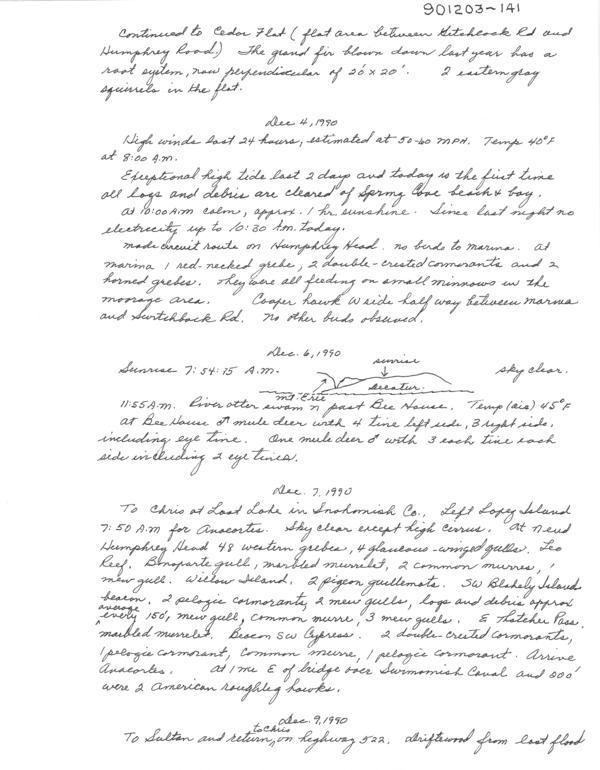 901203-141
Continued to Cedar Flat (flat area between Hitchcock Rd and
Humphrey Road.) The grand fir blown down last year has a
root system, now perpendicular of 20' x 20'. 2 eastern gray
squirrels in the flat.
Dec 4, 1990
High winds last 24 hours, estimated at 50-60 MPH. Temp 40°F
at 8:00 A.M.
Exceptional high tide last 2 days and today is the first time
all logs and debris are cleared of Spring Cove beach & bay.
At 10:00 AM calm, approx. 1 hr. sunshine. Since last night no
electricity up to 10:30 A.M. today.
Made circuit route on Humphrey Head. No birds to marina. At
marina 1 red-necked grebe, 2 double-crested cormorants and 2
horned grebes. They were all feeding on small minnows in the
moorage area. Cooper hawk W side half way between marina
and Switchback Rd. No other birds observed.
Dec. 6, 1990
sunrise
Sunrise 7:54:15 A.M. Decatur. sky clear.
Mt. Erie
11:55 A.M. River otter swam n past Bee House. Temp (air) 45°F
At Bee House ♂ mule deer with 4 tine left side, 3 right side,
including eye tine. One mule deer ♂ with 3 each tine each
side including 2 eye tines.
Dec. 7, 1990
To Chris at Lost Lake in Snohomish Co., Left Lopez Island
7:50 A.M for Anacortes. Sky clear except high cirrus. At N end
Humphrey Head 48 western grebes, 4 glaucous-winged gulls. Leo
Reef. Bonaparte gull, marbled murrelet, 2 common murres, 1
mew gull. Willow Island. 2 pigeon guillemots. SW Blakely Island
beacon. 2 pelagic cormorants, 2 mew gulls, logs and debris approx
average
every 150', mew gull, common murre, 3 mew gulls. E Thatcher Pass.
marbled murrelet. Beacon SW Cypress. 2 double-crested cormorants,
1 pelagic cormorant, common murre, 1 pelagic cormorant. Arrive
Anacortes. At 1 mi E of bridge over Swinomish Canal and 200'
were 2 American roughleg hawks.
Dec. 9, 1990
to Chris
To Sultan and return, on highway 522. Driftwood from last flood